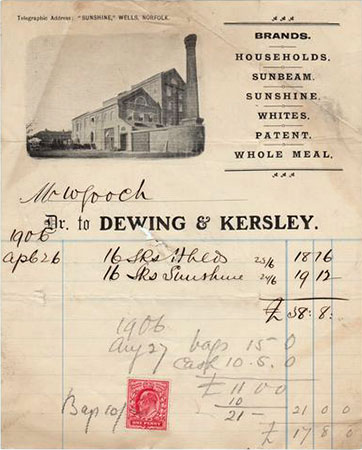 Telegraphic Address: "SUNSHINE," WELLS, NORFOLK.
BRANDS.
HOUSEHOLDS.
SUNBEAM.
SUNSHINE.
WHITES.
PATENT.
WHOLE MEAL.
Mr W Gooch
Dr. to DEWING & KERSLEY.
1906
Ap 26 16 Sks Hhlds 23/6 18 16
16 Sks Sunshine 24/6 19 12
£ 38: 8:
1906
Aug 27 bags 15 0
Cash 10. 5. 0
£ 11 0 0
10
Bags 10/ 21 - 21 0 0
£ 17 8 0
ONE PENNY